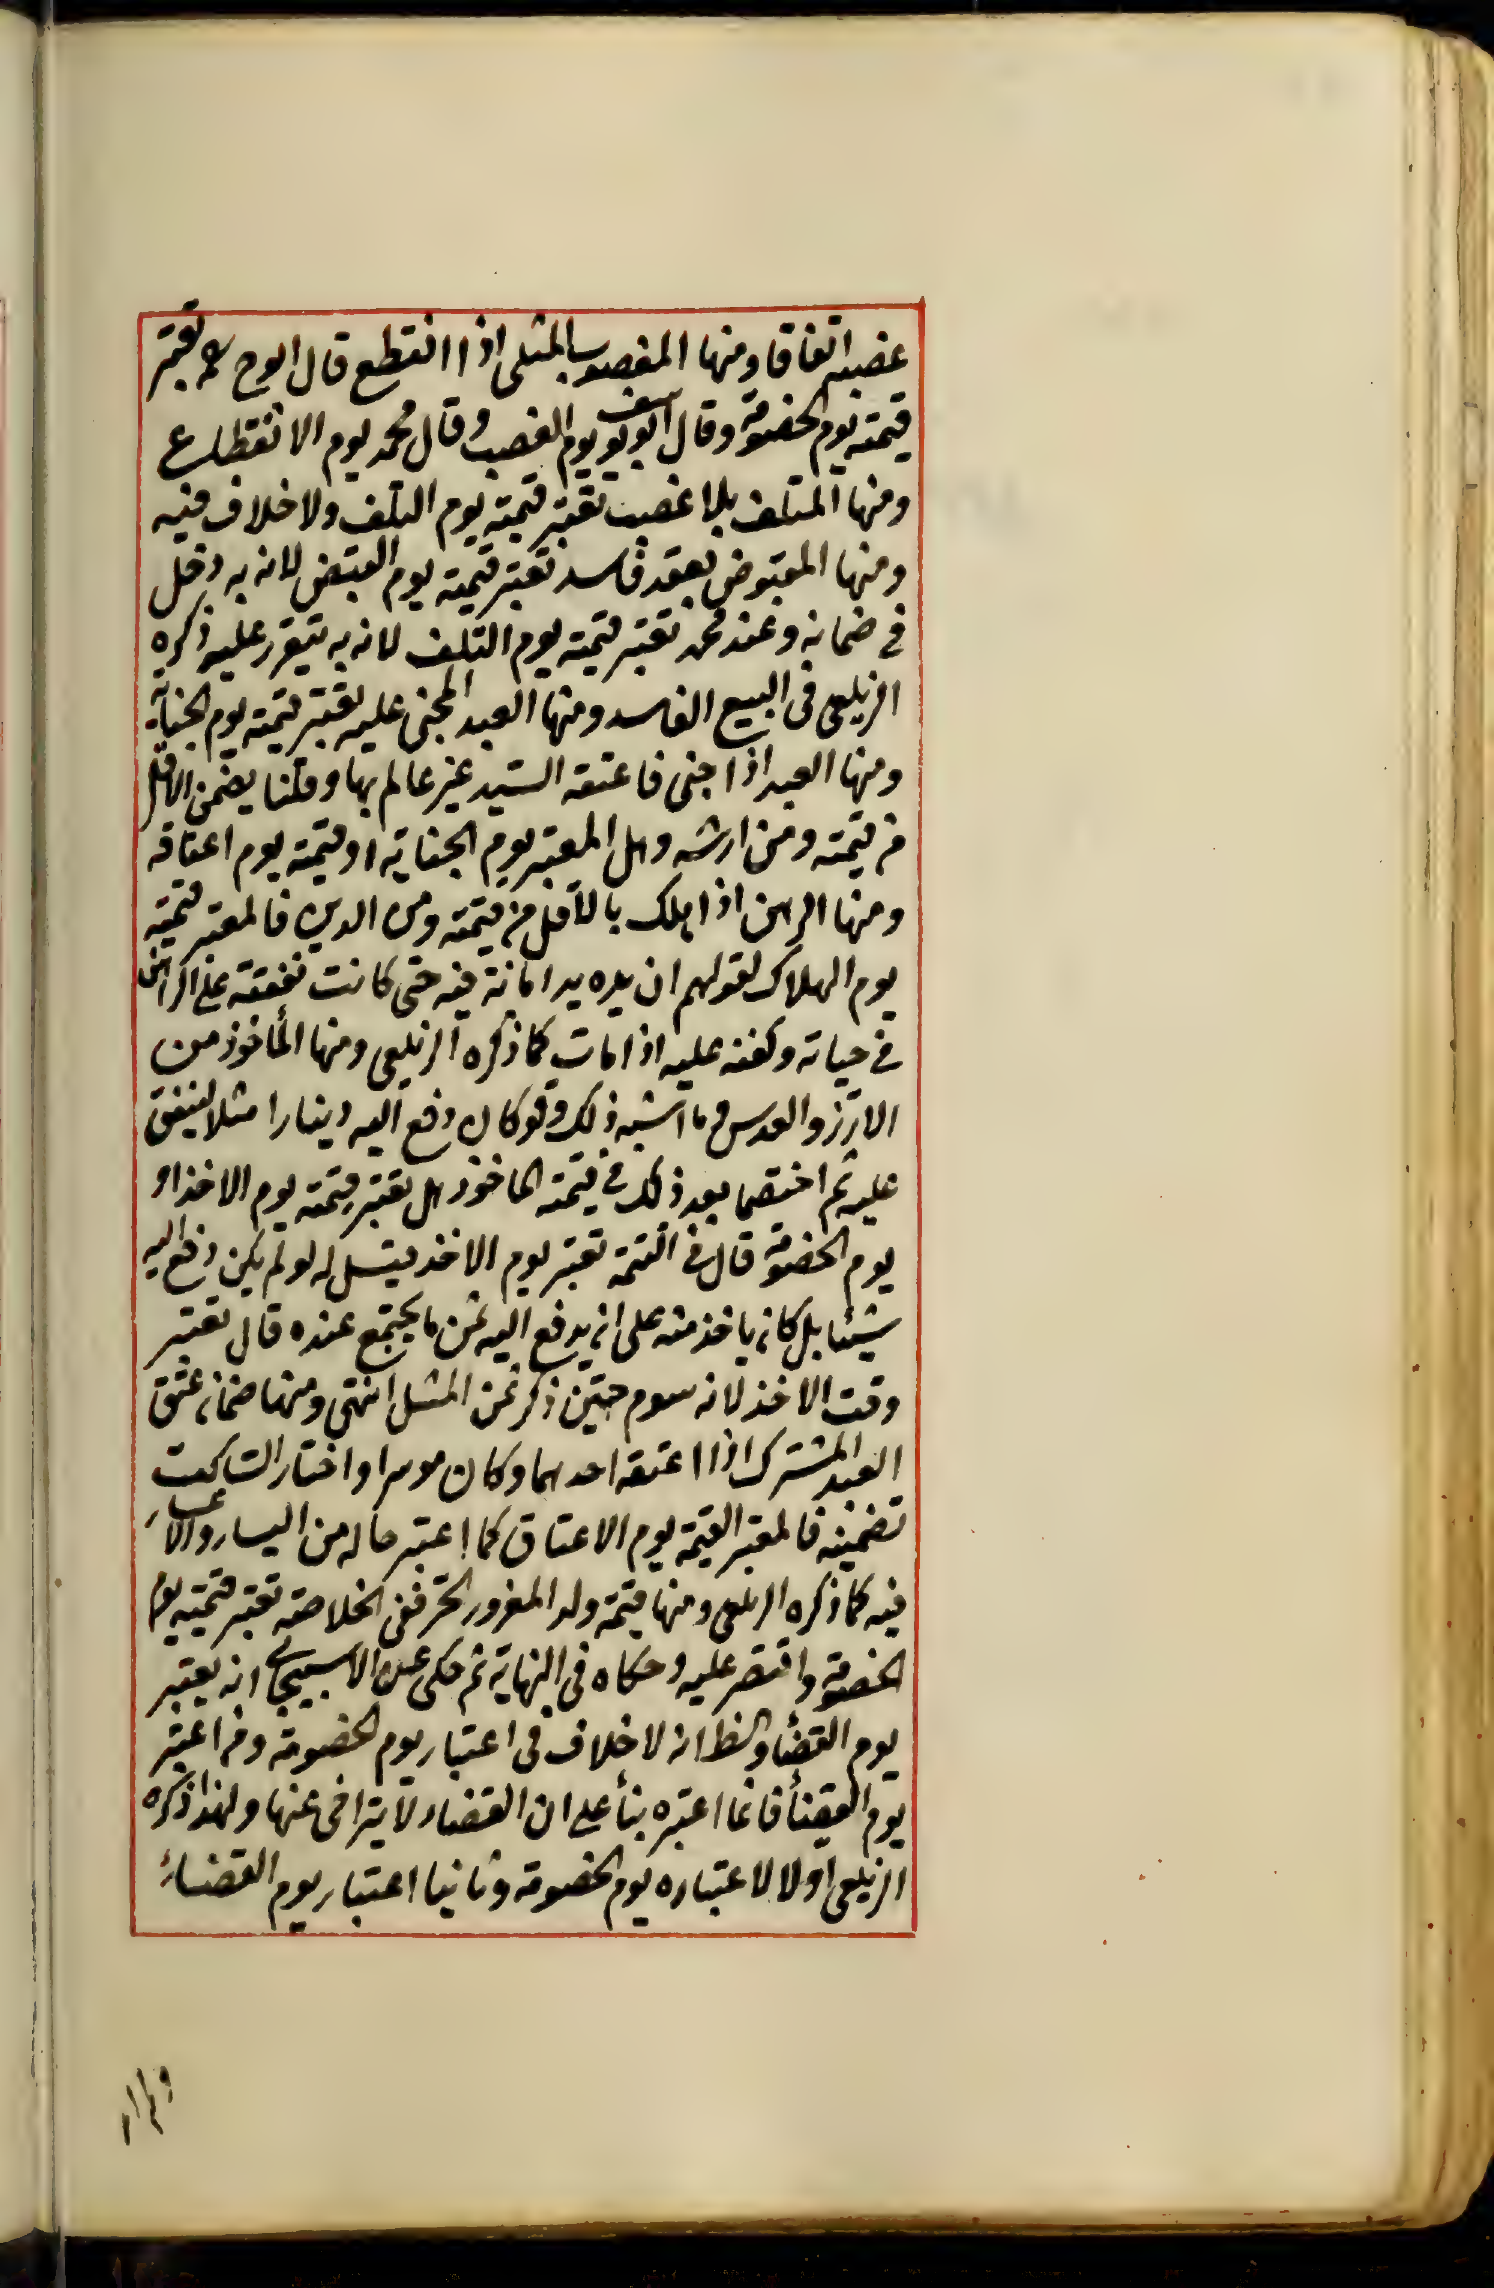 غصبه اتفاقا ومنها المغصوب المثلي اذا انقطع قال ابو ح رحمه تعتبر
قيمته يوم الخصومة وقال ابو يوسف يوم الغصب وقال محمد يوم الانقطاع
ومنها المتلف بلا غصب تعتبر قيمته يوم التلف ولا خلاف فيه
ومنها المقبوض بعقد فاسد تعتبر قيمته يوم القبض لانه به دخل
في ضمانه وعند محمد تعتبر قيمته يوم التلف لانه به يتقرر عليه ذكره
الزيلعي في البيع الفاسد ومنها العبد المجني عليه تعتبر قيمته يوم الجناية
ومنها العبد اذا جنى فاعتقه السيد غير عالم بها وقلنا يضمن الاقل
من قيمته ومن ارشه وهل المعتبر يوم الجناية او قيمته يوم اعتاقه
ومنها الرهن اذا هلك بالاقل من قيمته ومن الدين فالمعتبر قيمته
يوم الهلاك لقولهم ان يده يد امانة فيه حتى كانت نفقته على الراهن
في حياته وكفنه عليه اذا مات كما ذكره الزيلعي ومنها المأخوذ من
الارز والعدس وما اشبه ذلك وقد كان دفع اليه دينارا مثلا لينفق
عليه ثم اختصما بعد ذلك في قيمة الماخوذ هل تعتبر قيمته يوم الاخذ او
يوم الخصومة قال في التتمة تعتبر يوم الاخذ قيل له لو لم يكن دفع اليه
شيئا بل كان ياخذ منه على ان يدفع اليه ثمن ما يجتمع عنده قال تعتبر
وقت الاخذ لانه سوم حين ذكر ثمن المثل انتهى ومنها ضمان عتق
العبد المشترك اذا اعتقه احدهما وكان موسرا واختار الساكت
تضمينه فالمعتبر القيمة يوم الاعتاق كما اعتبر حاله من اليسار والاعسار
فيه كما ذكره الزيلعي ومنها قيمة ولد المغرور الحر ففي الخلاصة تعتبر قيمته يوم
الخصومة واقتصر عليه وحكاه في النهاية ثم حكى عن الاسبيجابي انه يعتبر
يوم القضأ والظ انه لا خلاف في اعتبار يوم الخصومة ومن اعتبر
يوم القضأ فانما اعتبره بنأ على ان القضاء لا يتراخى عنها ولهذا ذكره
الزيلعي اولا لاعتباره يوم الخصومة وثانيا اعتبار يوم القضاء